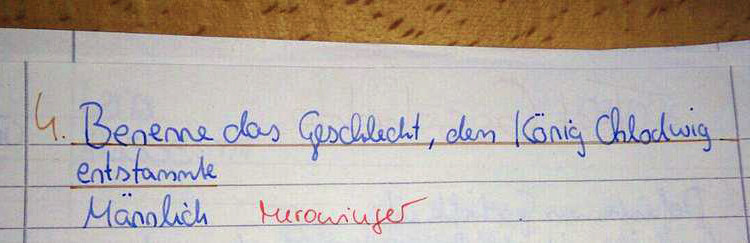 4. Benenne das Geschlecht, dem König Chlodwig
entstammte
Männlich Merowinger